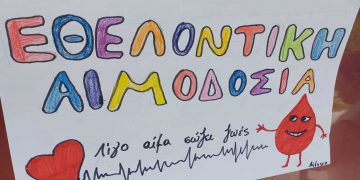 ΕΘΕΛΟΝΤΙΚΗ
ΑΙΜΟΔΟΣΙΑ
Λίγο αίμα σώζει ζωές